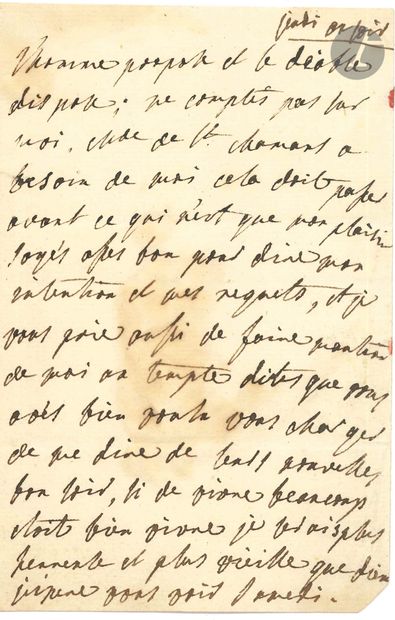 jeudi au soir
l'homme propose et le diable
dispose; ne comptés pas sur
moi, Mde de St. chamans a
besoin de moi cela doit passer
avant ce qui n'est que mon plaisir
soyés assés bon pour dire mon
intention et mes regrets, et je
vous prie aussi de faire mention
de moi au temple dites que vous
avés bien voulu vous charger
de me dire de leurs nouvelles
bon soir, si de vivre beaucoup
etoit bien vivre je serais plus
et plus vieille que
j'espere vous voir Samedi.